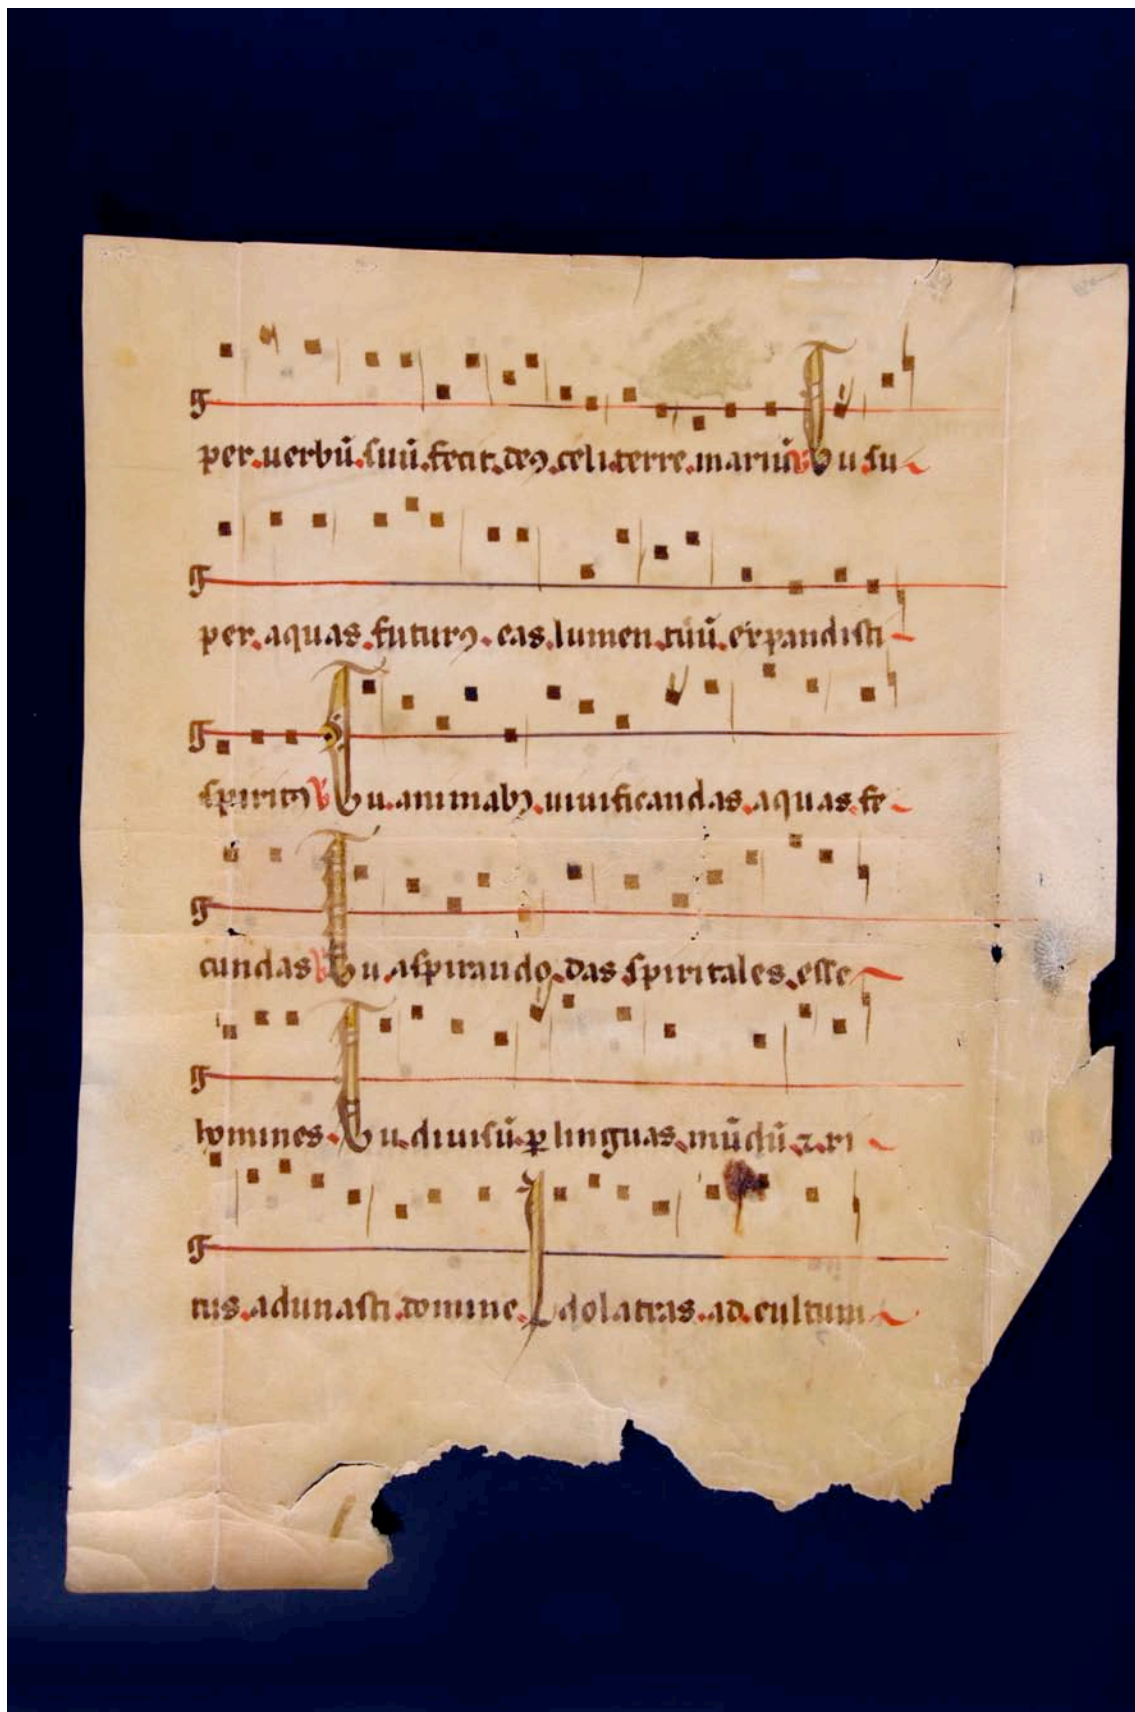 per. uerbū. suū. fecit. deꝰ. celi. terre. mariū ℣ Tu su
per. aquas. futurꝰ. eas. lumen. tuū. expandisti
spiritꝰ ℣ Tu. animabꝫ. uiuificandas. aquas. fe
cundas ℣ Tu. aspirando. das. spiritales. esse
homines. Tu. diuisū. ꝑ linguas. mūdū. ⁊. ri
tus. adunasti. domine. Idolatras. ad. cultum